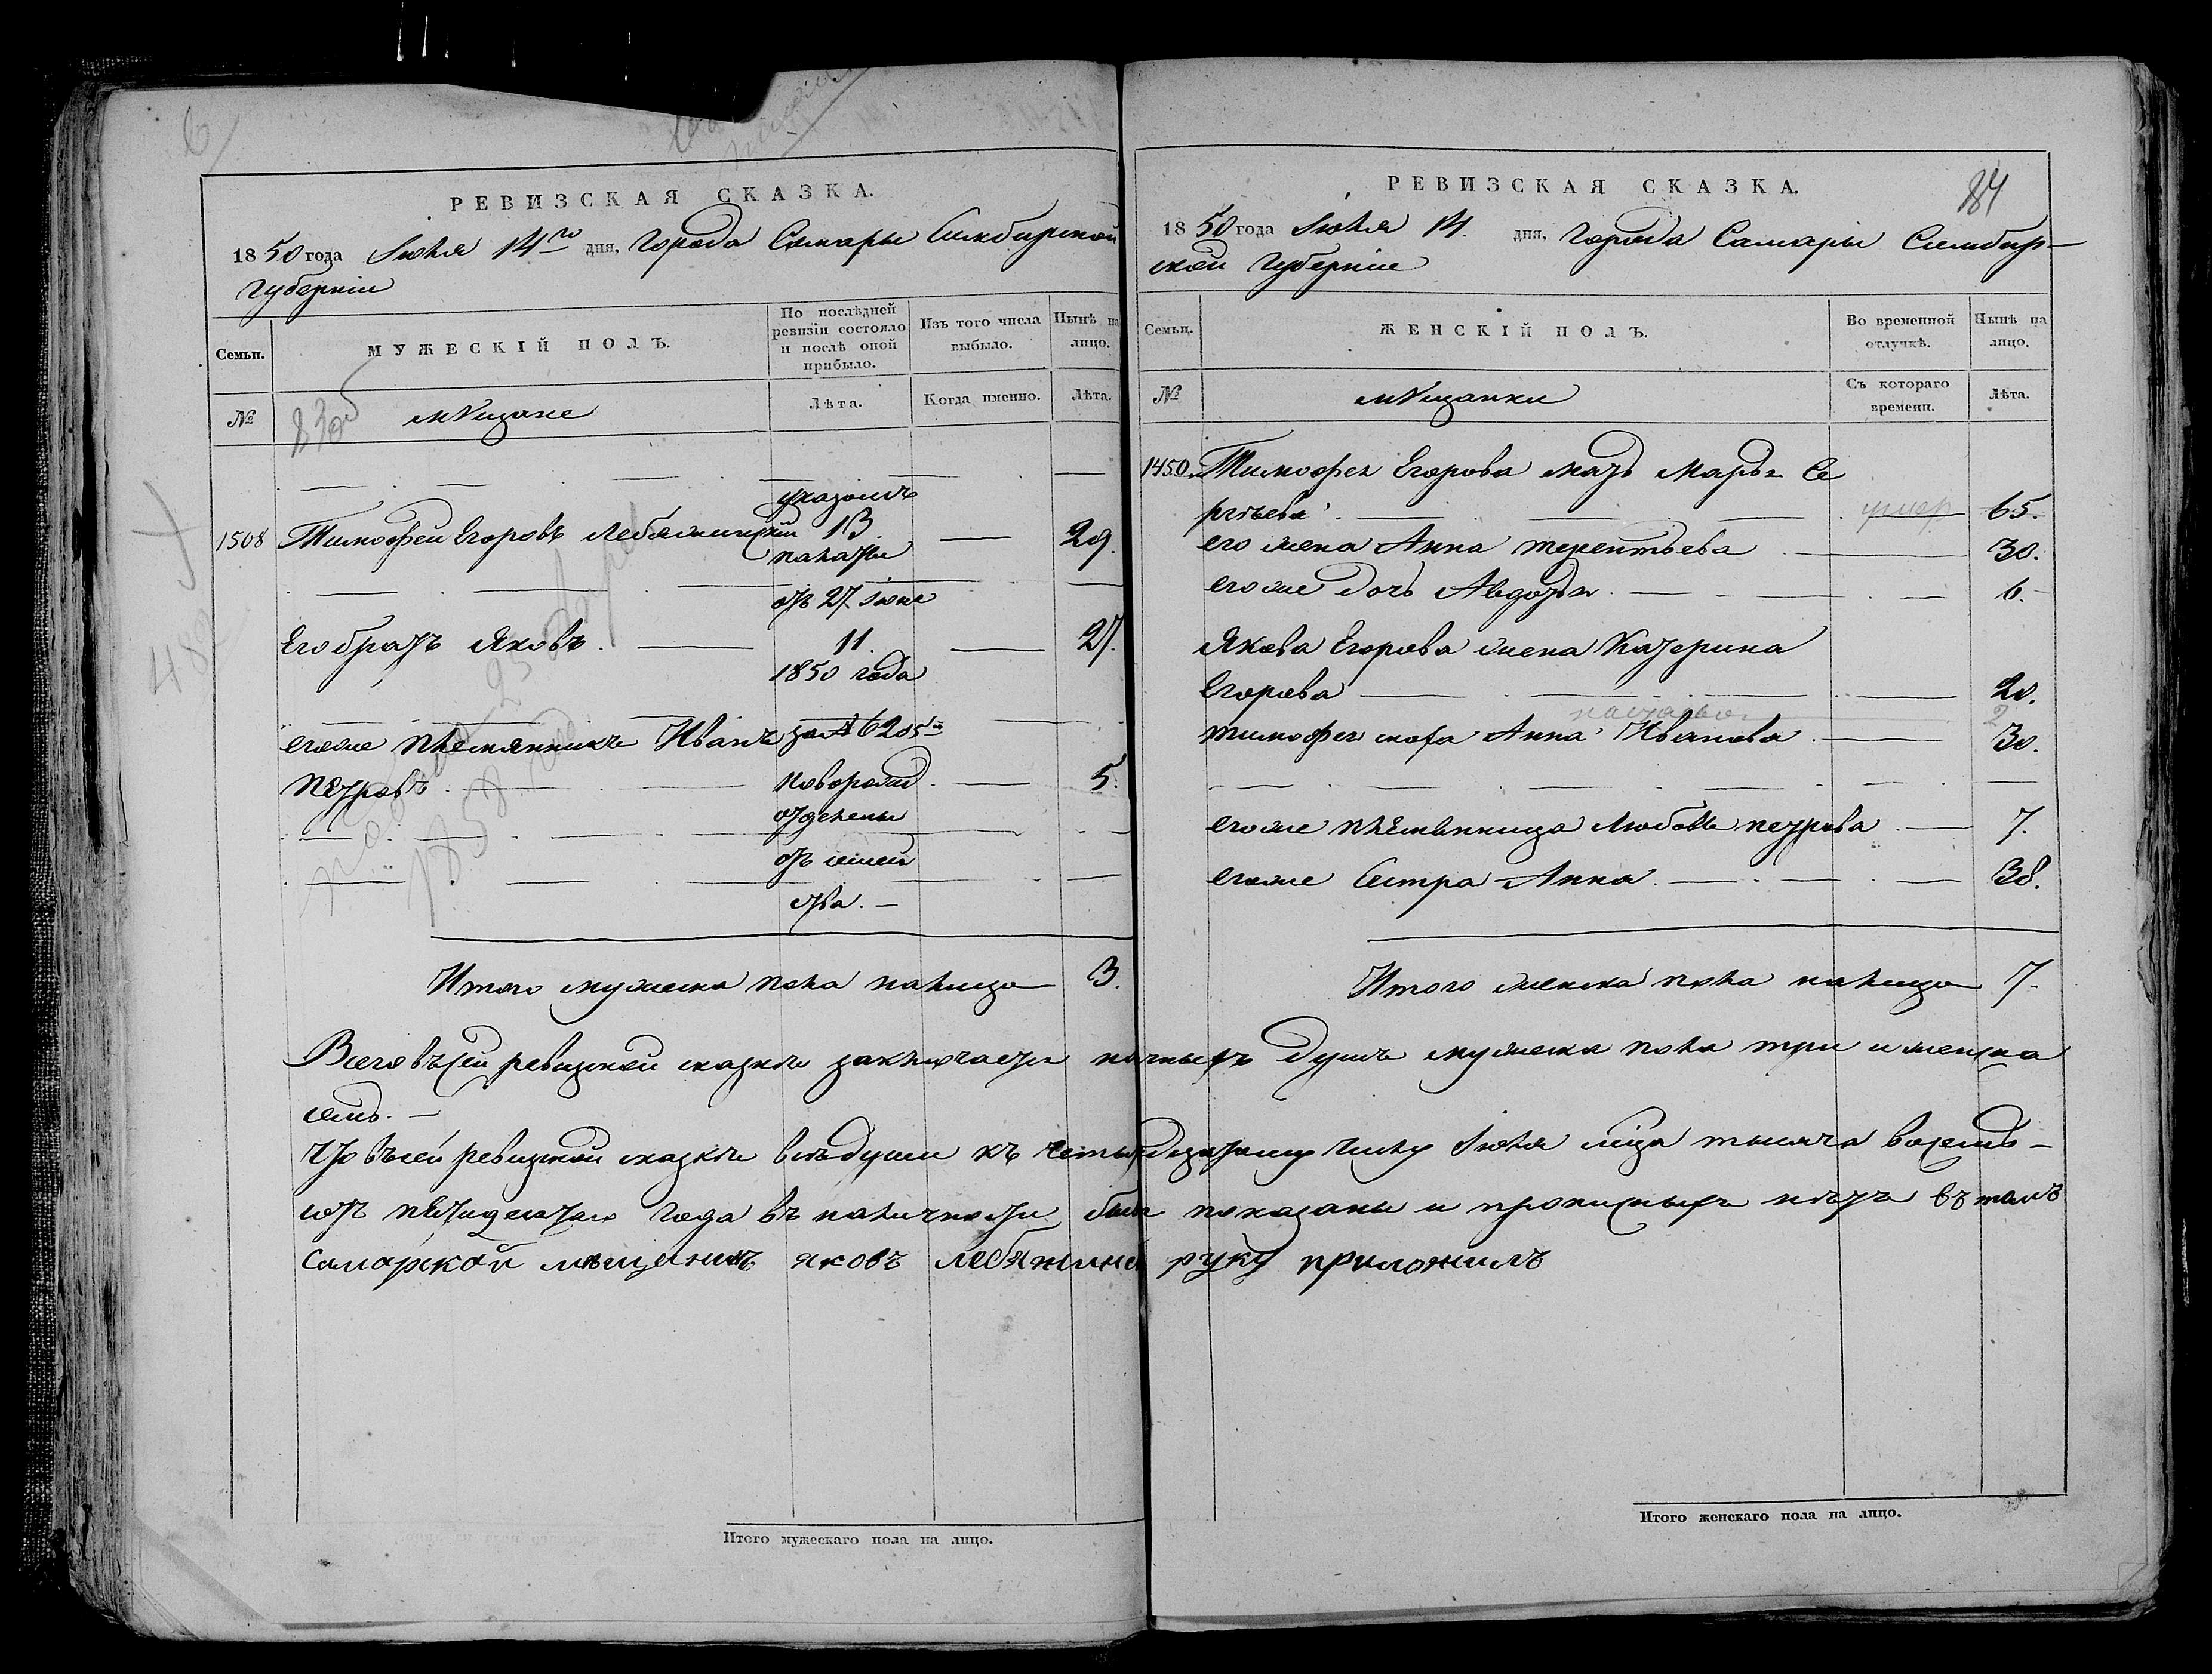 РЕВИЗСКАЯ СКАЗКА.
1850 года Июля 14го дня, Города Самары Симбирской
Губерніи
Семьи.
МУЖЕСКІЙ ПОЛЪ.
По послѣдней ревизіи состояло и послѣ оной прибыло.
Изъ того числа выбыло.
Нынѣ на лицо.
№
мѣщане
Лѣта.
Когда именно.
Лѣта.
указомъ
1508 Тимофей Егоровъ Лебяжинскій 13 29.
палаты
отъ 27 июне
Его братъ Яковъ. 11. 27.
1850 года
егоже племянникъ Иванъ за № 6205м
Петровъ новорожд. 5.
отделены
отъ семей
ства.
Итого мужеска пола налицо 3.
Итого мужескаго пола на лицо.
РЕВИЗСКАЯ СКАЗКА.
84
1850 года Июля 14. дня, Города Самары Симбир-
ской Губерніи
Семьи.
ЖЕНСКІЙ ПОЛЪ.
Во временной отлучкѣ.
Нынѣ на лицо.
№
мѣщанки
Съ котораго времени.
Лѣта.
1450. Тимофея Егорова мать Марья Се
ргѣева умер 65.
его жена Анна терентьева 30.
егоже дочь Авдотья 6.
Якова Егорова жена Катерина
Егорова 20.
тимофея Анна Ивановна 30.
егоже племянница Любовь петрова 7.
егоже Сестра Анна 38.
Итого женска пола налицо 7.
Всего въ сей ревизской сказке заключается наличныхъ душъ мужеска пола три и женска
семь.
Что въ сей ревизской сказке все души къ четырнадцатому числу Июля мца тысяча восемь-
сотъ пѣтидесятаго года въ наличности были показаны и прописныхъ нетъ въ томъ
самарской мещенинъ яковъ лебяжинс руку приложилъ
Итого женскаго пола на лицо.